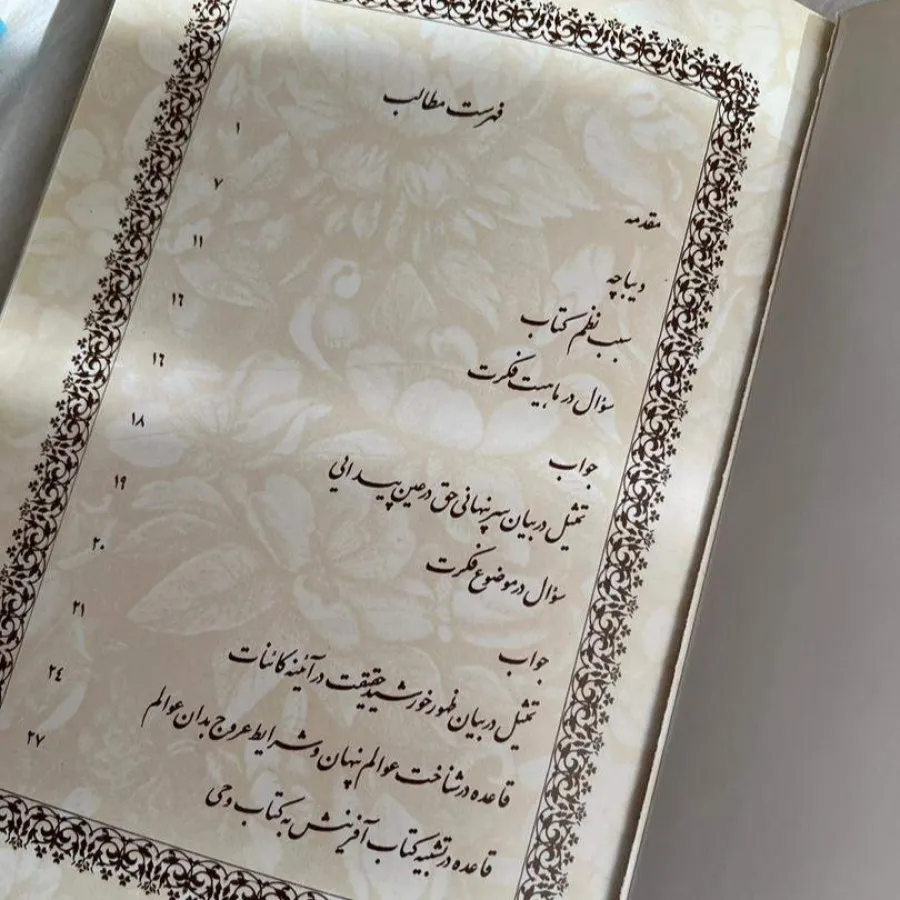 فهرست مطالب
مقدمه ۱
دیباچه ۷
سبب نظم کتاب ۱۱
سؤال در ماهیت فکرت ۱۶
جواب ۱۶
تمثیل در بیان سر پنهانی حق در عین پیدایی ۱۸
سؤال در موضوع فکرت ۱۹
جواب ۲۰
تمثیل در بیان ظهور خورشید حقیقت در آئینه کائنات ۲۱
قاعده در شناخت عوالم نهان و شرایط عروج بدان عوالم ۲۴
قاعده در تشبیه کتاب آفرینش به کتاب وحی ۲۷